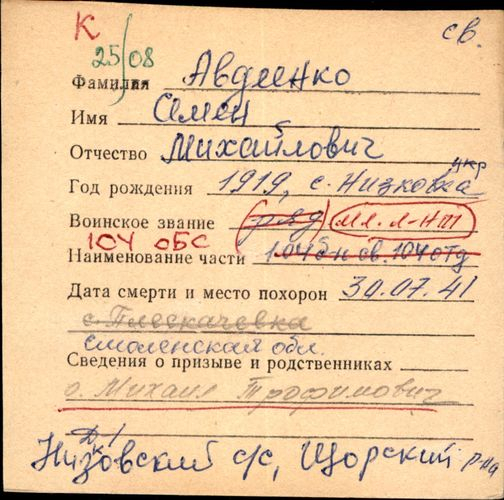 К
св.
25/08
Фамилия Авдеенко
Имя Семен
Отчество Михайлович
Укр
Год рождения 1919, с. Низковка
Воинское звание ряд мл. л-нт
104 ОБС
Наименование части 104 бн св. 104 отд
Дата смерти и место похорон 30.07.41
с. Плескачевка
Смоленская обл.
Сведения о призыве и родственниках
о. Михаил Трофимович
Низковский с/с, Щорский р-на